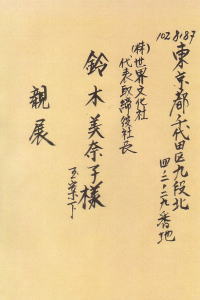 102-8187
東京都千代田区九段北
四-二-二九番地
(株)世界文化社
代表取締役社長
鈴木美奈子様
玉案下
親展